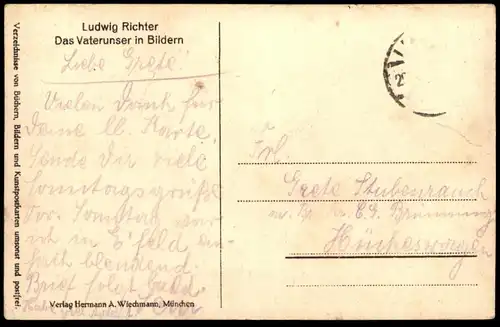 Ludwig Richter
Das Vaterunser in Bildern
Liebe Grete!
Vielen Dank für
Deine ll. Karte,
Sende dir viele
Sonntagsgrüße
Sonntag war
ich in E'feld
Brief folgt
Verlag Hermann A. Wiechmann, München
Verzeichnisse von Büchern, Bildern und Kunstpostkarten umsonst und postfrei.
Frl.
Grete Stubenrauch
Hückeswagen